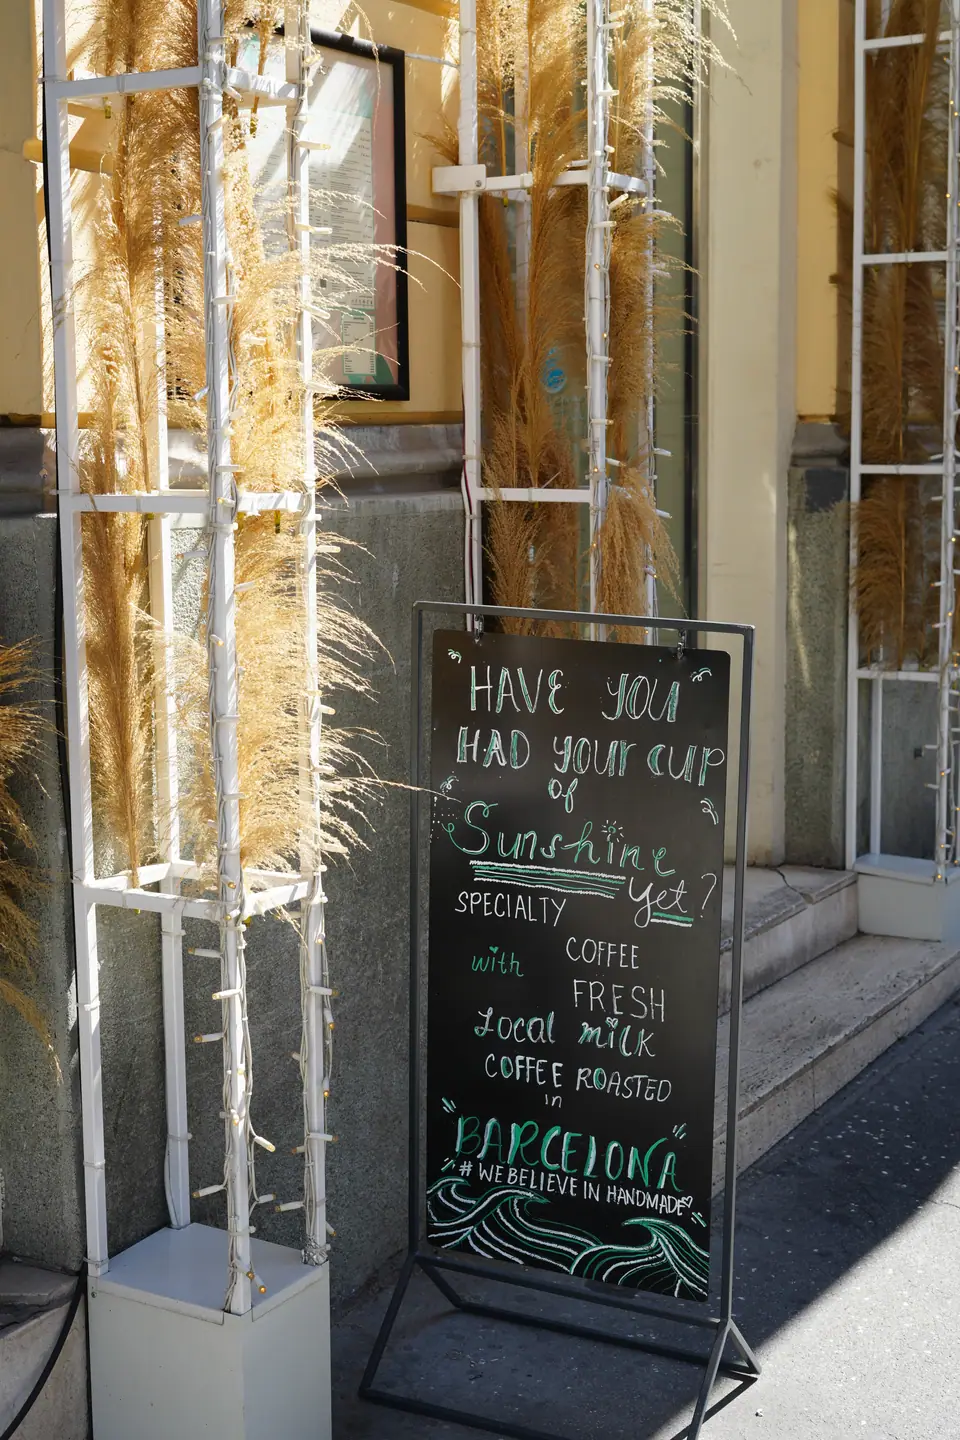 HAVE YOU
HAD YOUR CUP
of
Sunshine
yet?
SPECIALTY
COFFEE
with
FRESH
Local milk
COFFEE ROASTED
in
BARCELONA
# WE BELIEVE IN HANDMADE